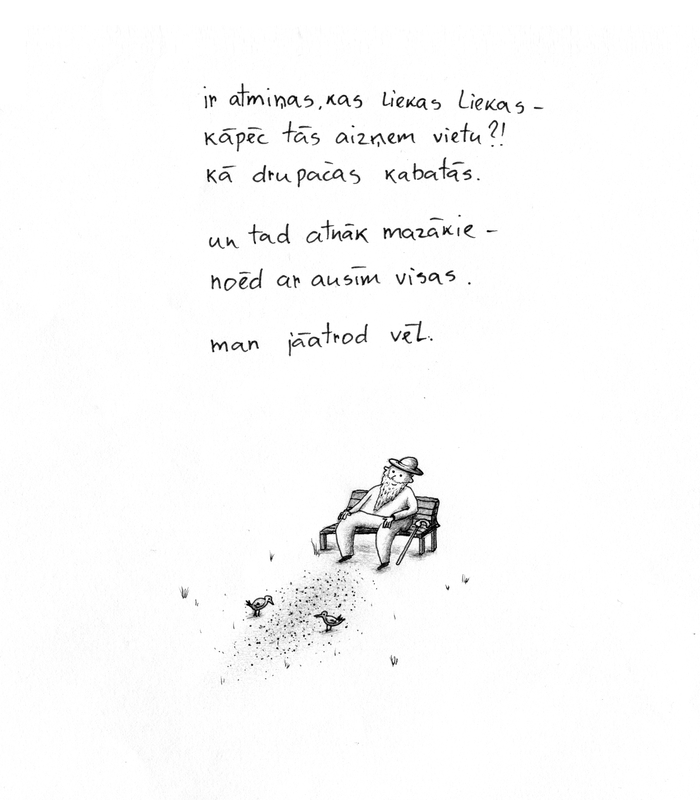 ir atmiņas, kas liekas liekas –
kāpēc tās aizņem vietu?!
kā drupačas kabatās.
un tad atnāk mazākie –
noēd ar ausīm visas.
man jāatrod vēl.